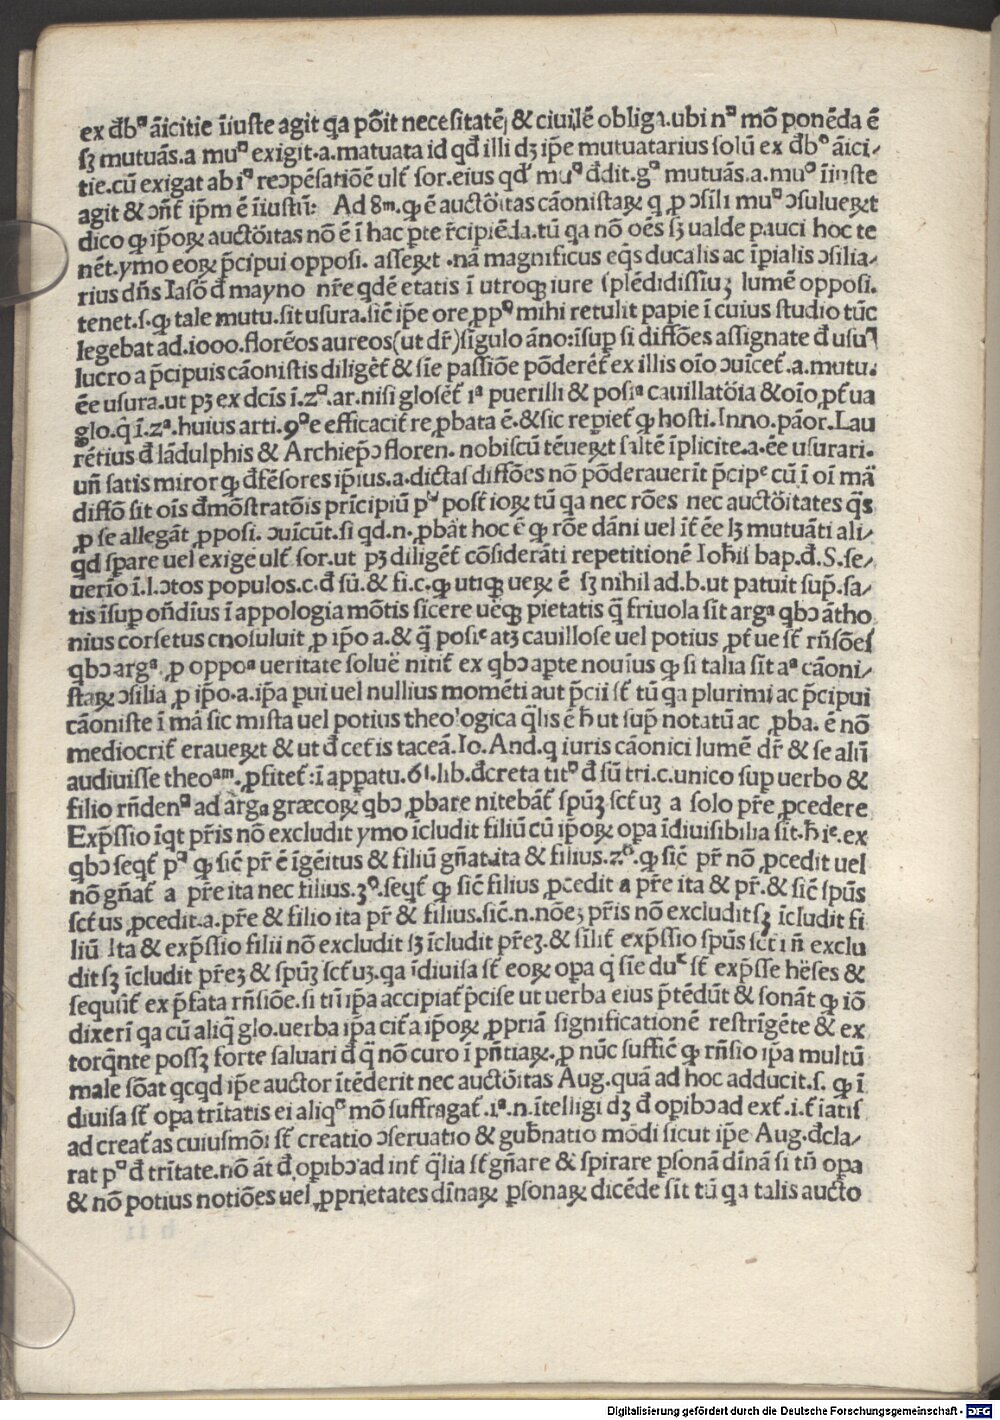 ex đbᵒ āicitie īiuste agit qa põit necesitatē & ciuilē obliga.ubi nᵒ mõ ponēda ē
sꝫ mutuās.a muᵒ exigit.a.matuata id qđ illi dꝫ ip̄e mutuatarius solū ex đbᵒ āici⸗
tie.cū exigat ab iᵒ reɔpēsatiõē ult̄ sor.eius qđ muᵒ đdit.gᵒ mutuās.a.muᵒ īiuste
agit & ɔn̄t ip̄m ē īiustū: Ad 8ᵐ.ꝙ ē auctõitas cāonistaꝝ q ꝓ ɔsili muᵒ ɔsulueꝝt
dico ꝙ ip̄oꝝ auctõitas nõ ē ī hac ꝑte r̄cipiēda.tū qa nõ oēs sꝫ ualde pauci hoc te
nēt.ymo eoꝝ p̄cipui opposi. asseꝝt .nā magnificus eq̄s ducalis ac īpialis ɔsilia⸗
rius dn̄s Iasõ đ mayno nr̄e qđē etatis ī utroqꝫ iure splēdidissīuꝫ lumē opposi.
tenet.s.ꝙ tale mutu.sit usura.sic̄ ip̄e ore ꝓpᵒ mihi retulit papie ī cuius studio tūc
legebat ad.1000.florēos aureos(ut dr̄)sīgulo āno:īsuꝑ si diffões assignate đ usuᵒ
lucro a p̄cipuis cāonistis diligēt̄ & sīe passiõe põderēt̄ ex illis oīo ɔuīcet̄.a.mutu.
ēe usura.ut pꝫ ex dcīs ī.2ᵒ.ar.nisi glosēt̄ 1ᵃ puerilli & posiᵃ cauillatõia & oīo ꝑt̄ ua
glo.q̄ ī.2ᵃ.huius arti.9ᵒe efficacit̄ reꝓbata ē.& sic repiet̄ ꝙ hosti.Inno.pāor.Lau
rētius đ lādulphis & Archiep̄ɔ floren. nobiscū tēueꝝt saltē īplicite.a.ēe usurari.
un̄ satis miror ꝙ đfēsores ip̄ius.a.dictas diffões nõ põderauerīt p̄cipᵉ cū ī oī mā
diffõ sit oīs đmõstratõis prīcipiū pᵐ post̄ ioꝝ tū qa nec rões nec auctõitates q̄s
ꝓ se allegāt ꝓposi. ɔuīcūt.si qđ.n.ꝓbāt hoc ē ꝙ rõe dāni uel it̄ ēe lꝫ mutuāti ali⸗
qđ sꝑare uel exige ult̄ sor.ut pꝫ diligēt̄ cõsiderāti repetitionē Ioh̄is bap.đ.S.se⸗
uerīo ī.l.ɔtos populos.c.đ sū.& fi.c.ꝙ utiqꝫ ueꝝ ē sꝫ nihil ad.b.ut patuit sup̄.sa⸗
tis īsuꝑ on̄dīus ī appologia mõtis sīcere ueqꝫ pietatis q̄ friuola sīt argᵃ qbɔ ātho
nius corsetus cnosuluit ꝓ ip̄o a.& q̄ posiᵉ atꝫ cauillose uel potius ꝑt̄ ue st̄ rn̄sões
qbɔ argᵃ.ꝓ oppoᵃ ueritate soluē nitit̄ ex qbɔ aꝑte nouīus ꝙ si talia sīt aᵃ cāoni⸗
staꝝ ɔsilia ꝓ ip̄o.a.ip̄a pui uel nullius momēti aut p̄cii st̄ tū qa plurimi ac p̄cipui
cāoniste ī mā sic mista uel potius theologica q̄lis ē ħ ut sup̄ notatū ac ꝓba. ē nõ
mediocrit̄ eraueꝝt & ut đ cet̄is taceā.Io.And.q iuris cāonici lumē dr̄ & se aliī
audiuisse theoᵃᵐ.ꝓfitet̄:ī appatu.6ⁱ.lib.đcreta titᵒ đ sū tri.c.unico suꝑ uerbo &
filio rn̄denᵒ ad ārga græcoꝝ qbɔ ꝓbare nitebāt̄ sp̄uꝫ sct̄uꝫ a solo pr̄e ꝓcedere
Exp̄ssio īqt pr̄is nõ excludit ymo īcludit filiū cū ip̄oꝝ opa īdiuisibilia sīt.ħ iᵉ.ex
qbɔ seqt̄ pᵒ ꝙ sic̄ pr̄ ē īgēitus & filiū gn̄at.ita & filius.2ᵒ.ꝙ sic̄ pr̄ nõ ꝓcedit uel
nõ gn̄at̄ a pr̄e ita nec filius.3ᵒ.seqt̄ ꝙ sic̄ filius ꝓcedit a pr̄e ita & pr̄.& sic̄ sp̄us
sct̄us ꝓcedit.a.pr̄e & filio ita pr̄ & filius.sic̄.n.nõeꝫ pr̄is nõ excludit sꝫ īcludit fi
liū Ita & exp̄ssio filii nõ excludit sꝫ īcludit pr̄eꝫ.& sīlit̄ exp̄ssio sp̄us sct̄i n̄ exclu
dit sꝫ īcludit pr̄eꝫ & sp̄uꝫ sct̄uꝫ.qa īdiuisa st̄ eoꝝ opa q̄ sīe duᶜ st̄ exp̄sse hēses &
sequūt̄ ex p̄fata rn̄siõe.si tn̄ ip̄a accipiat̄ p̄cise ut uerba eius p̄tēdūt & sonāt ꝙ iõ
dixerī qa cū aliq̄ glo.uerba ip̄a cit̄a ip̄oꝝ ꝓpriā significationē restrīgēte & ex
torq̄nte possꝫ forte saluari đ q̄ nõ curo ī pn̄tiaꝝ.ꝓ nūc suffic̄ ꝙ rn̄sio ip̄a multū
male sõat qcqđ ip̄e auctor ītēderit nec auctõitas Aug.quā ad hoc adducit.s.ꝙ ī
diuisa st̄ opa trītatis ei aliqᵒ mõ suffragat̄.1ᵃ.n.ītelligi dꝫ đ opibɔ ad ext̄.i.t̄iatis
ad creat̄as cuiusmõi st̄ creatio ɔseruatio & gub̄natio modi sicut ip̄e Aug.đcla⸗
rat pᵒ đ trītate.nõ āt đ opibɔ ad int̄ q̄lia st̄ gn̄are & spirare ꝑsonā dīnā si tn̄ opa
& nõ potius notiões uel ꝓprietates dīnaꝝ ꝑsonaꝝ dicēde sīt tū qa talis aucto
Digitalisierung gefördert durch die Deutsche Forschungsgemeinschaft - DFG